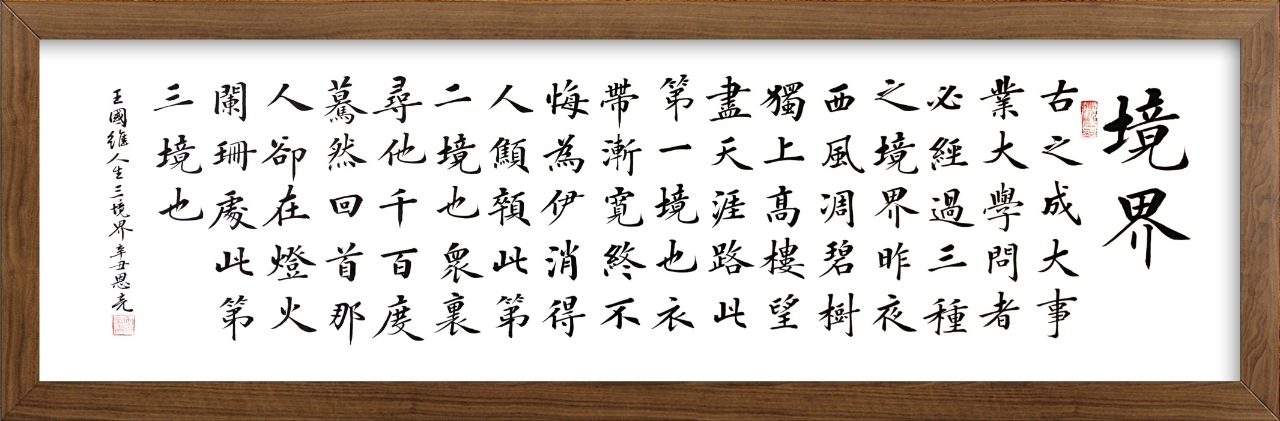 境界
古之成大事
業大學問者
必經過三種
之境界昨夜
西風凋碧樹
獨上髙樓望
盡天涯路此
第一境也衣
帶漸寬終不
悔為伊消得
人顦顇此第
二境也衆裏
尋他千百度
驀然回首那
人卻在燈火
闌珊處此第
三境也
王國維人生三境界辛丑思亮